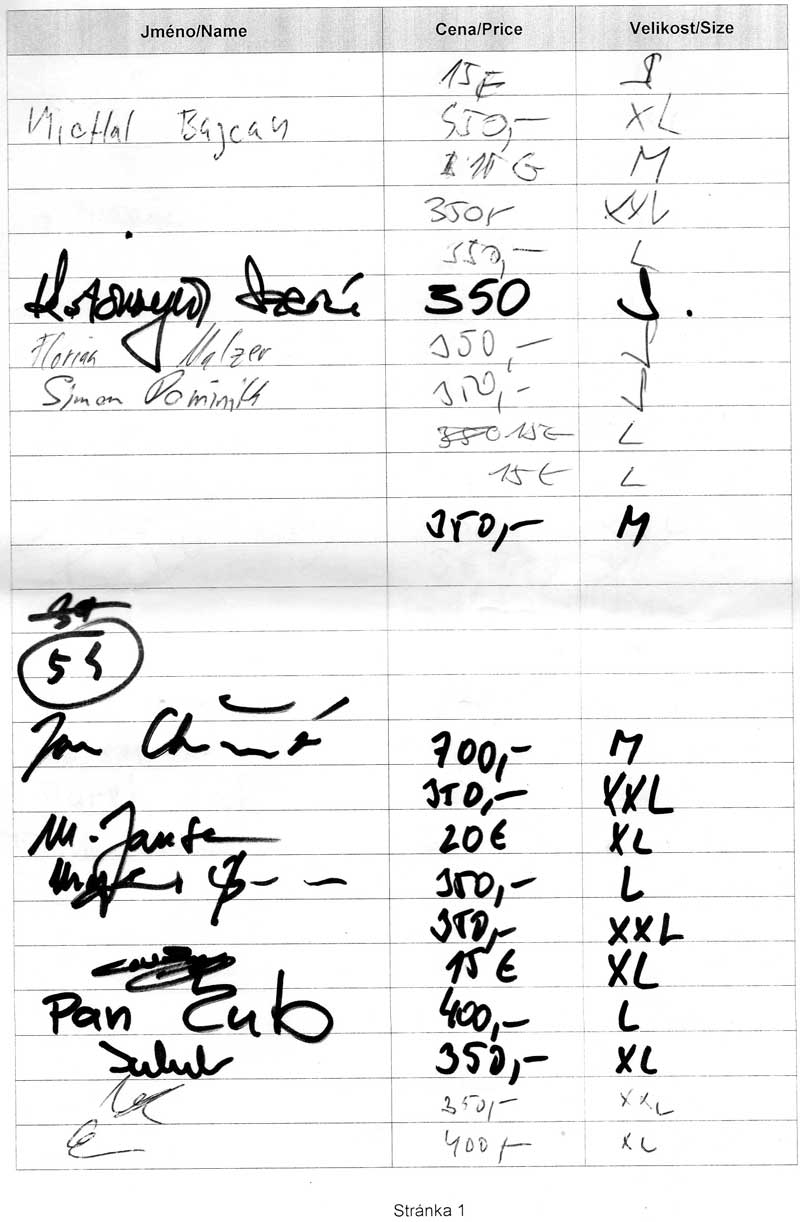 Jméno/Name Cena/Price Velikost/Size
15€ S
Michal Bajcan 350,- XL
15 € M
350,- XXL
350,- L
350 S.
Florian Malzer 350,- L
Simon Dominik 350,- L
350 15€ L
15€ L
350,- M
54
Jan 700,- M
350,- XXL
M. 20€ XL
350,- L
350,- XXL
15€ XL
Pan Zub 400,- L
350,- XL
350,- XXL
400,- XL
Stránka 1